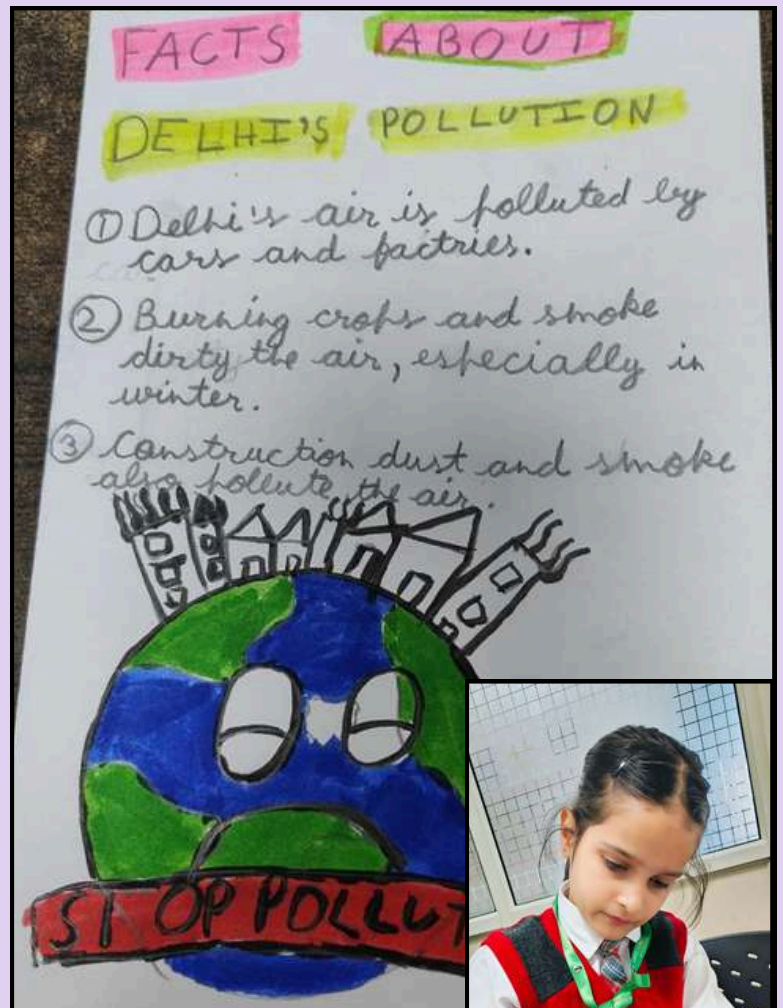 FACTS ABOUT
DELHI'S POLLUTION
① Delhi's air is polluted by
cars and factries.
② Burning crops and smoke
dirty the air, especially in
winter.
③ Construction dust and smoke
also pollute the air.
STOP POLLUT